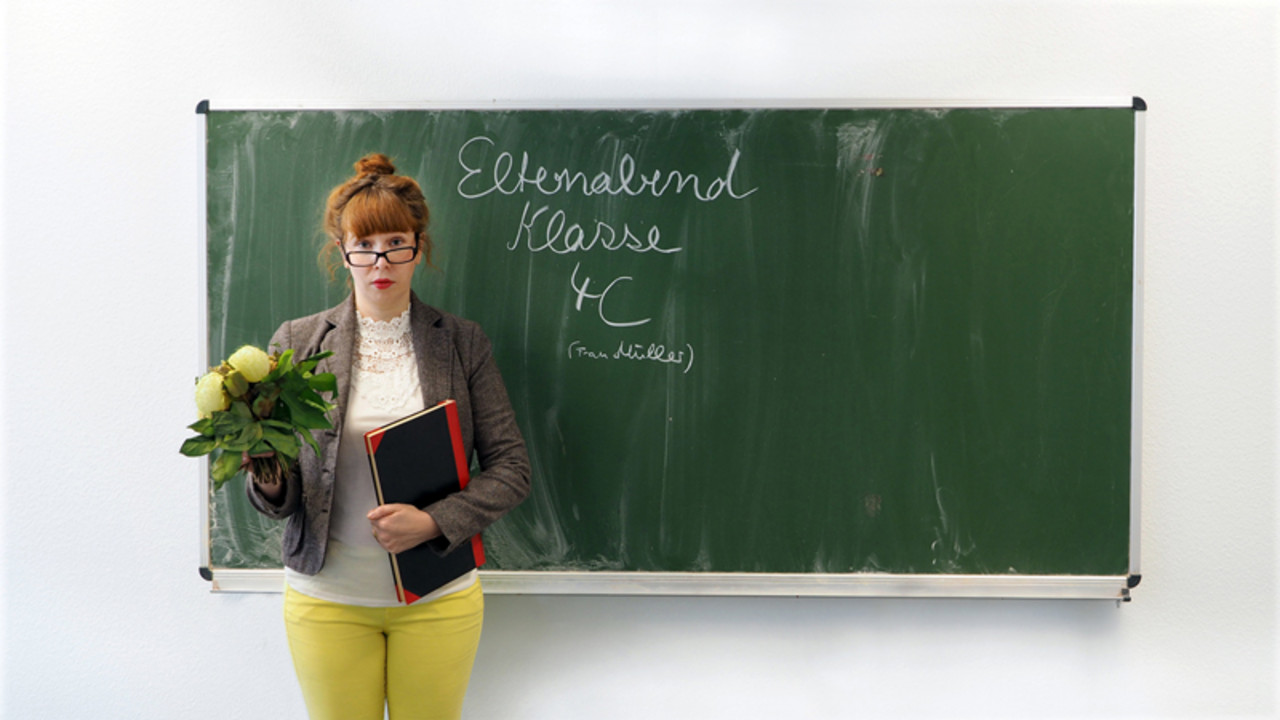 Elternabend
Klasse
4C
(Frau Müller)